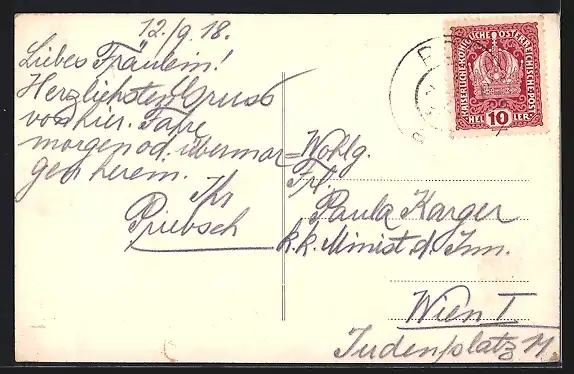 12./9.18.
Liebes Fräulein!
Herzlichsten Gruss
von hier. Fahre
morgen od. übermor=
gen herein.
Ihr
Priebsch
Wohlg.
Frl.
Paula Karger
k.k. Minist. d. Inn.
Wien I
Judenplatz 11
KAISERLICHE KÖNIGLICHE ÖSTERREICHISCHE POST
HELLER 10